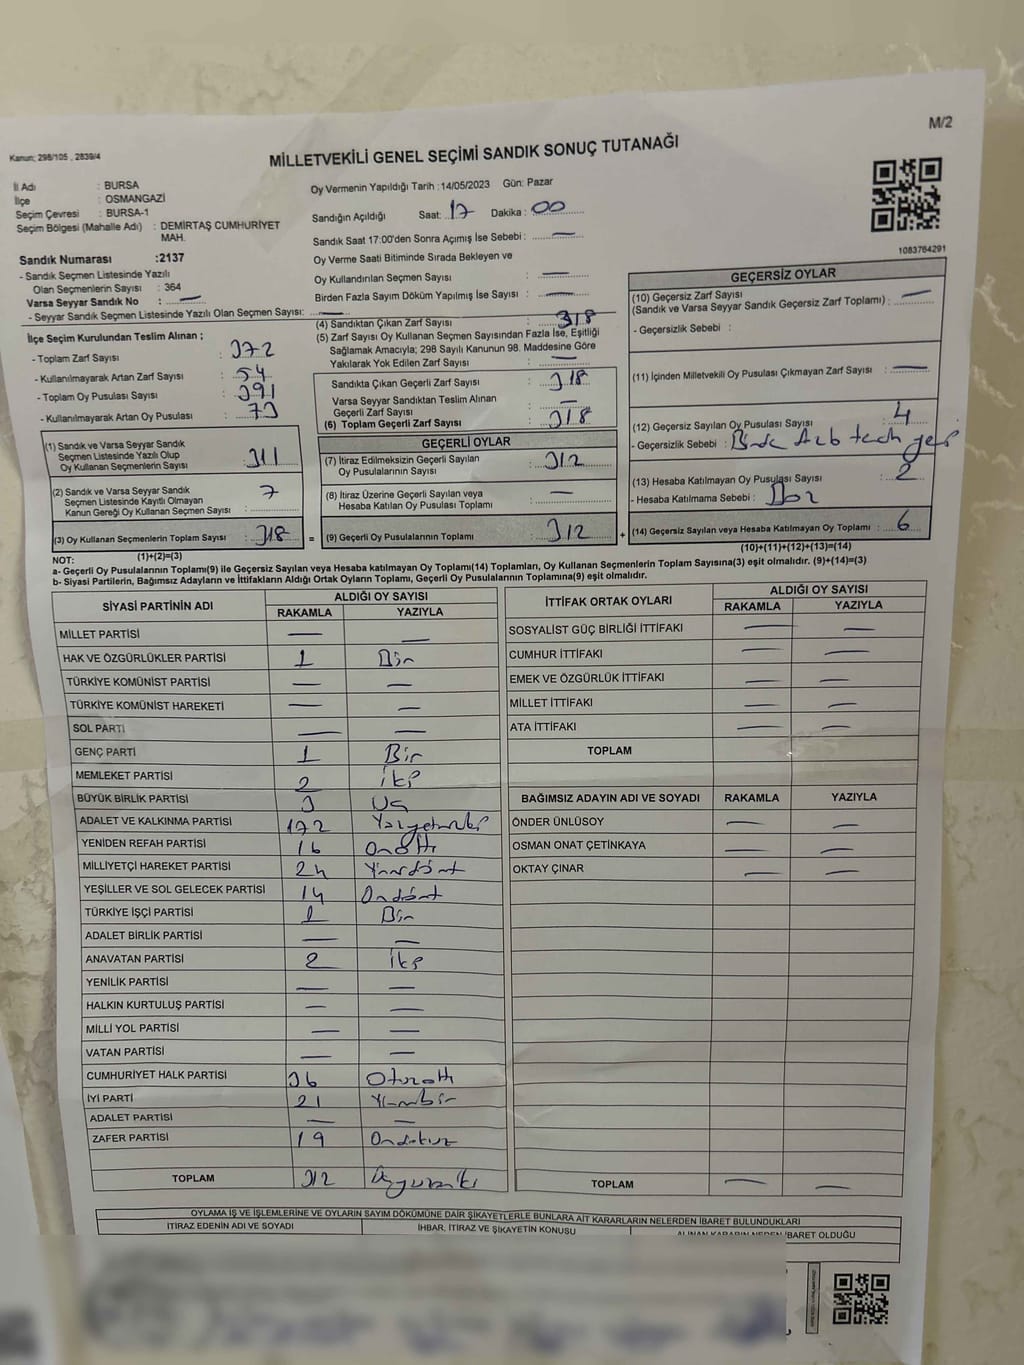 M/2
Kanun; 298/105 , 2839/4
MİLLETVEKİLİ GENEL SEÇİMİ SANDIK SONUÇ TUTANAĞI
İl Adı : BURSA
İlçe : OSMANGAZİ
Seçim Çevresi : BURSA-1
Seçim Bölgesi (Mahalle Adı) : DEMİRTAŞ CUMHURİYET
MAH.
Sandık Numarası :2137
- Sandık Seçmen Listesinde Yazılı
Olan Seçmenlerin Sayısı : 364
Varsa Seyyar Sandık No : —
- Seyyar Sandık Seçmen Listesinde Yazılı Olan Seçmen Sayısı: —
İlçe Seçim Kurulundan Teslim Alınan ;
- Toplam Zarf Sayısı : 372
- Kullanılmayarak Artan Zarf Sayısı : 54
- Toplam Oy Pusulası Sayısı : 391
- Kullanılmayarak Artan Oy Pusulası : 73
(1) Sandık ve Varsa Seyyar Sandık
Seçmen Listesinde Yazılı Olup
Oy Kullanan Seçmenlerin Sayısı : 311
(2) Sandık ve Varsa Seyyar Sandık
Seçmen Listesinde Kayıtlı Olmayan
Kanun Gereği Oy Kullanan Seçmen Sayısı : 7
(3) Oy Kullanan Seçmenlerin Toplam Sayısı : 318
(1)+(2)=(3)
Oy Vermenin Yapıldığı Tarih :14/05/2023 Gün: Pazar
Sandığın Açıldığı Saat: 17 Dakika: 00
Sandık Saat 17:00'den Sonra Açılmış İse Sebebi : —
Oy Verme Saati Bitiminde Sırada Bekleyen ve
Oy Kullandırılan Seçmen Sayısı : —
Birden Fazla Sayım Döküm Yapılmış İse Sayısı : —
(4) Sandıktan Çıkan Zarf Sayısı : 318
(5) Zarf Sayısı Oy Kullanan Seçmen Sayısından Fazla İse, Eşitliği
Sağlamak Amacıyla; 298 Sayılı Kanunun 98. Maddesine Göre
Yakılarak Yok Edilen Zarf Sayısı : —
Sandıkta Çıkan Geçerli Zarf Sayısı : 318
Varsa Seyyar Sandıktan Teslim Alınan
Geçerli Zarf Sayısı : —
(6) Toplam Geçerli Zarf Sayısı : 318
GEÇERLİ OYLAR
(7) İtiraz Edilmeksizin Geçerli Sayılan
Oy Pusulalarının Sayısı : 312
(8) İtiraz Üzerine Geçerli Sayılan veya
Hesaba Katılan Oy Pusulası Toplamı : —
= (9) Geçerli Oy Pusulalarının Toplamı : 312 +
1083764291
GEÇERSİZ OYLAR
(10) Geçersiz Zarf Sayısı
(Sandık ve Varsa Seyyar Sandık Geçersiz Zarf Toplamı) : —
- Geçersizlik Sebebi :
(11) İçinden Milletvekili Oy Pusulası Çıkmayan Zarf Sayısı : —
(12) Geçersiz Sayılan Oy Pusulası Sayısı : 4
- Geçersizlik Sebebi :
(13) Hesaba Katılmayan Oy Pusulası Sayısı : 2
- Hesaba Katılmama Sebebi :
(14) Geçersiz Sayılan veya Hesaba Katılmayan Oy Toplamı : 6
(10)+(11)+(12)+(13)=(14)
NOT:
a- Geçerli Oy Pusulalarının Toplamı(9) ile Geçersiz Sayılan veya Hesaba katılmayan Oy Toplamı(14) Toplamları, Oy Kullanan Seçmenlerin Toplam Sayısına(3) eşit olmalıdır. (9)+(14)=(3)
b- Siyasi Partilerin, Bağımsız Adayların ve İttifakların Aldığı Ortak Oyların Toplamı, Geçerli Oy Pusulalarının Toplamına(9) eşit olmalıdır.
SİYASİ PARTİNİN ADI ALDIĞI OY SAYISI
RAKAMLA YAZIYLA
MİLLET PARTİSİ — —
HAK VE ÖZGÜRLÜKLER PARTİSİ 1 Bir
TÜRKİYE KOMÜNİST PARTİSİ — —
TÜRKİYE KOMÜNİST HAREKETİ — —
SOL PARTİ — —
GENÇ PARTİ 1 Bir
MEMLEKET PARTİSİ 2 iki
BÜYÜK BİRLİK PARTİSİ 3 Üç
ADALET VE KALKINMA PARTİSİ 172 Yüzyetmişiki
YENİDEN REFAH PARTİSİ 16 Onaltı
MİLLİYETÇİ HAREKET PARTİSİ 24 Yirmidört
YEŞİLLER VE SOL GELECEK PARTİSİ 14 Ondört
TÜRKİYE İŞÇİ PARTİSİ 1 Bir
ADALET BİRLİK PARTİSİ — —
ANAVATAN PARTİSİ 2 iki
YENİLİK PARTİSİ — —
HALKIN KURTULUŞ PARTİSİ — —
MİLLİ YOL PARTİSİ — —
VATAN PARTİSİ — —
CUMHURİYET HALK PARTİSİ 36 Otuzaltı
İYİ PARTİ 21 Yirmibir
ADALET PARTİSİ — —
ZAFER PARTİSİ 19 Ondokuz
TOPLAM 312 Üçyüzoniki
İTTİFAK ORTAK OYLARI ALDIĞI OY SAYISI
RAKAMLA YAZIYLA
SOSYALİST GÜÇ BİRLİĞİ İTTİFAKI — —
CUMHUR İTTİFAKI — —
EMEK VE ÖZGÜRLÜK İTTİFAKI — —
MİLLET İTTİFAKI — —
ATA İTTİFAKI — —
TOPLAM
BAĞIMSIZ ADAYIN ADI VE SOYADI RAKAMLA YAZIYLA
ÖNDER ÜNLÜSOY — —
OSMAN ONAT ÇETİNKAYA — —
OKTAY ÇINAR — —
TOPLAM — —
OYLAMA İŞ VE İŞLEMLERİNE VE OYLARIN SAYIM DÖKÜMÜNE DAİR ŞİKAYETLERLE BUNLARA AİT KARARLARIN NELERDEN İBARET BULUNDUKLARI
İTİRAZ EDENİN ADI VE SOYADI İHBAR, İTİRAZ VE ŞİKAYETİN KONUSU ALINAN KARARIN NEDEN İBARET OLDUĞU